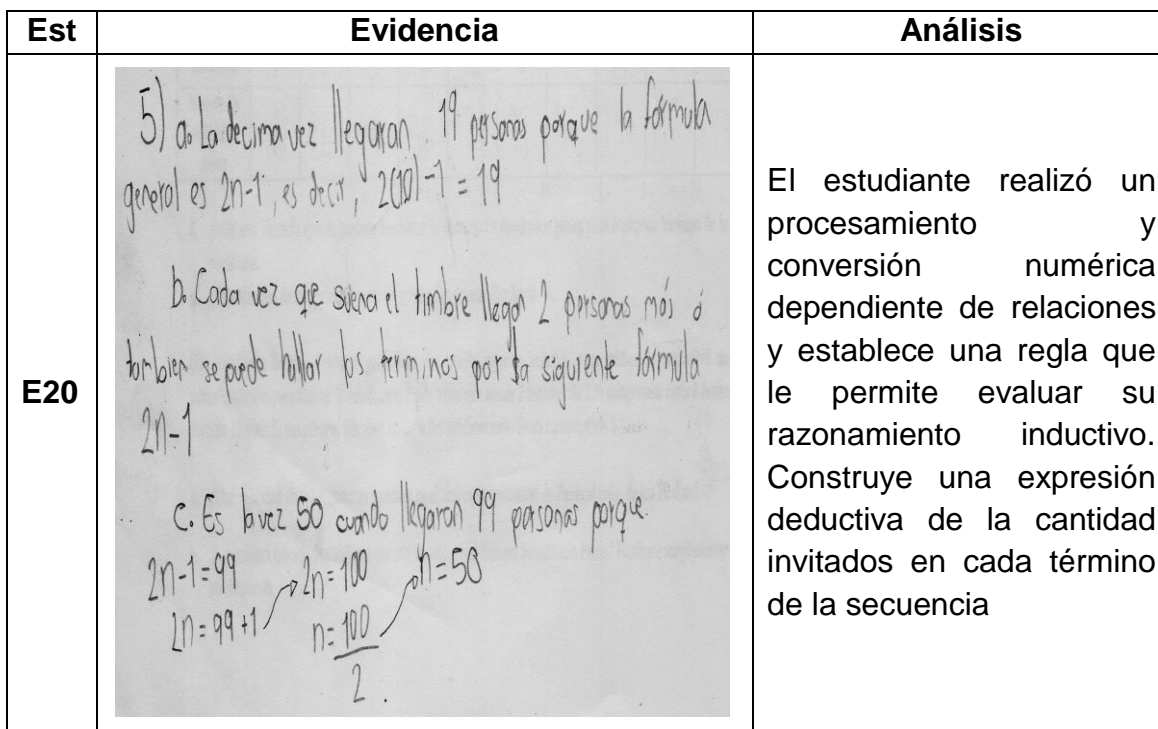 Est Evidencia Análisis
E20
5) a. La decima vez llegaran 19 personas porque la formula
general es 2n-1, es decir, 2(10)-1 = 19
b. Cada vez que suena el timbre llegan 2 personas más ó
tambien se puede hallar los terminos por la siguiente fórmula
2n-1
c. Es la vez 50 cuando llegaron 99 personas porque.
2n-1=99 2n=100 n=50
2n=99+1 n=100
2.
El estudiante realizó un
procesamiento y
conversión numérica
dependiente de relaciones
y establece una regla que
le permite evaluar su
razonamiento inductivo.
Construye una expresión
deductiva de la cantidad
invitados en cada término
de la secuencia